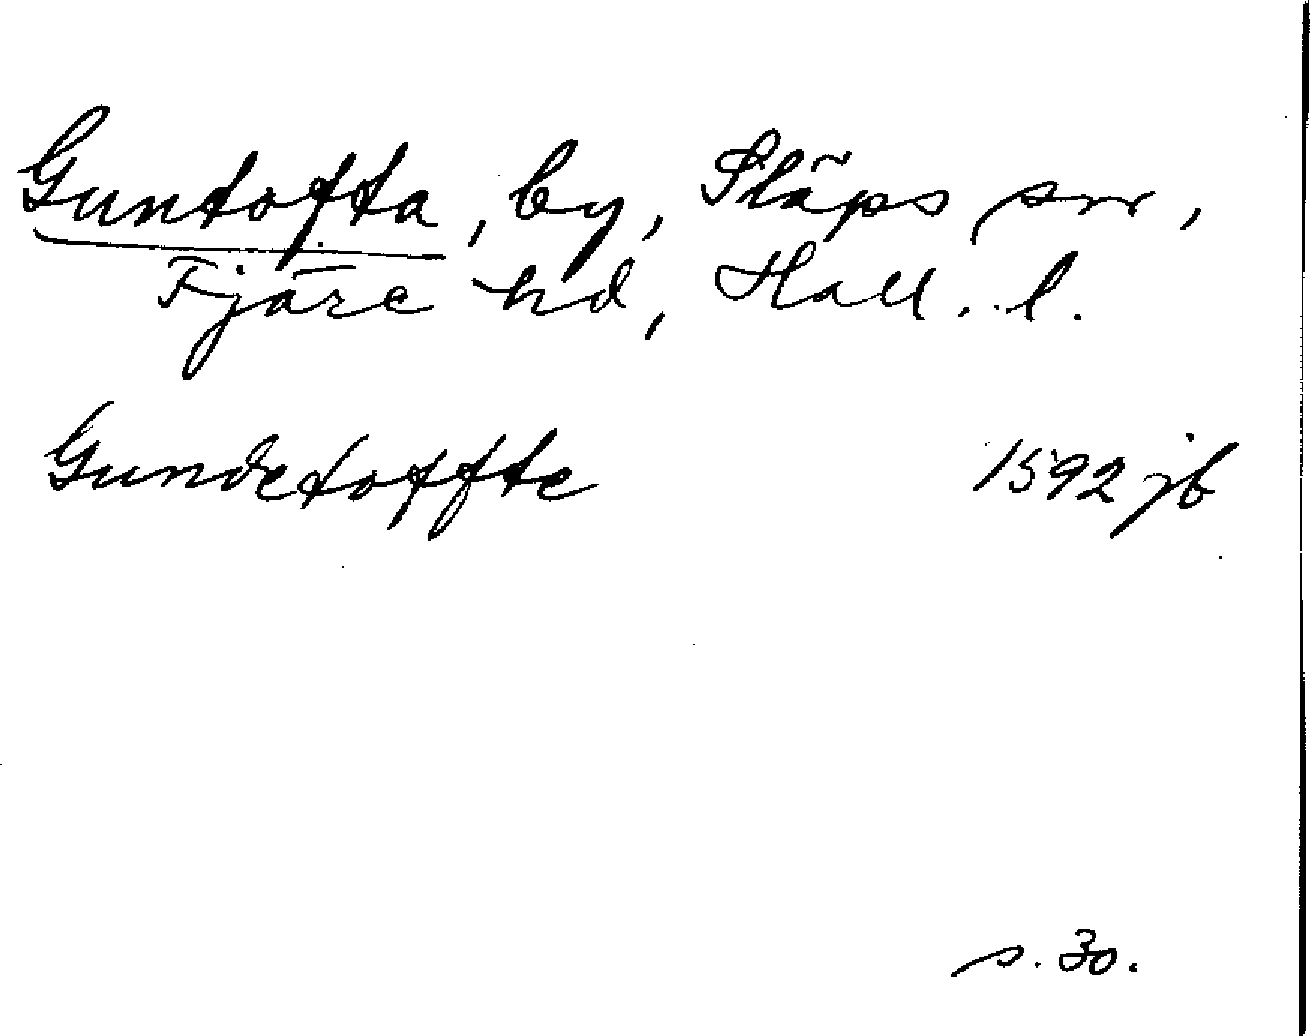 Guntofta, by, Släps sn,
Fjäre hd, Hall. l.
Gundetoffte 1592 jb
s. 30.